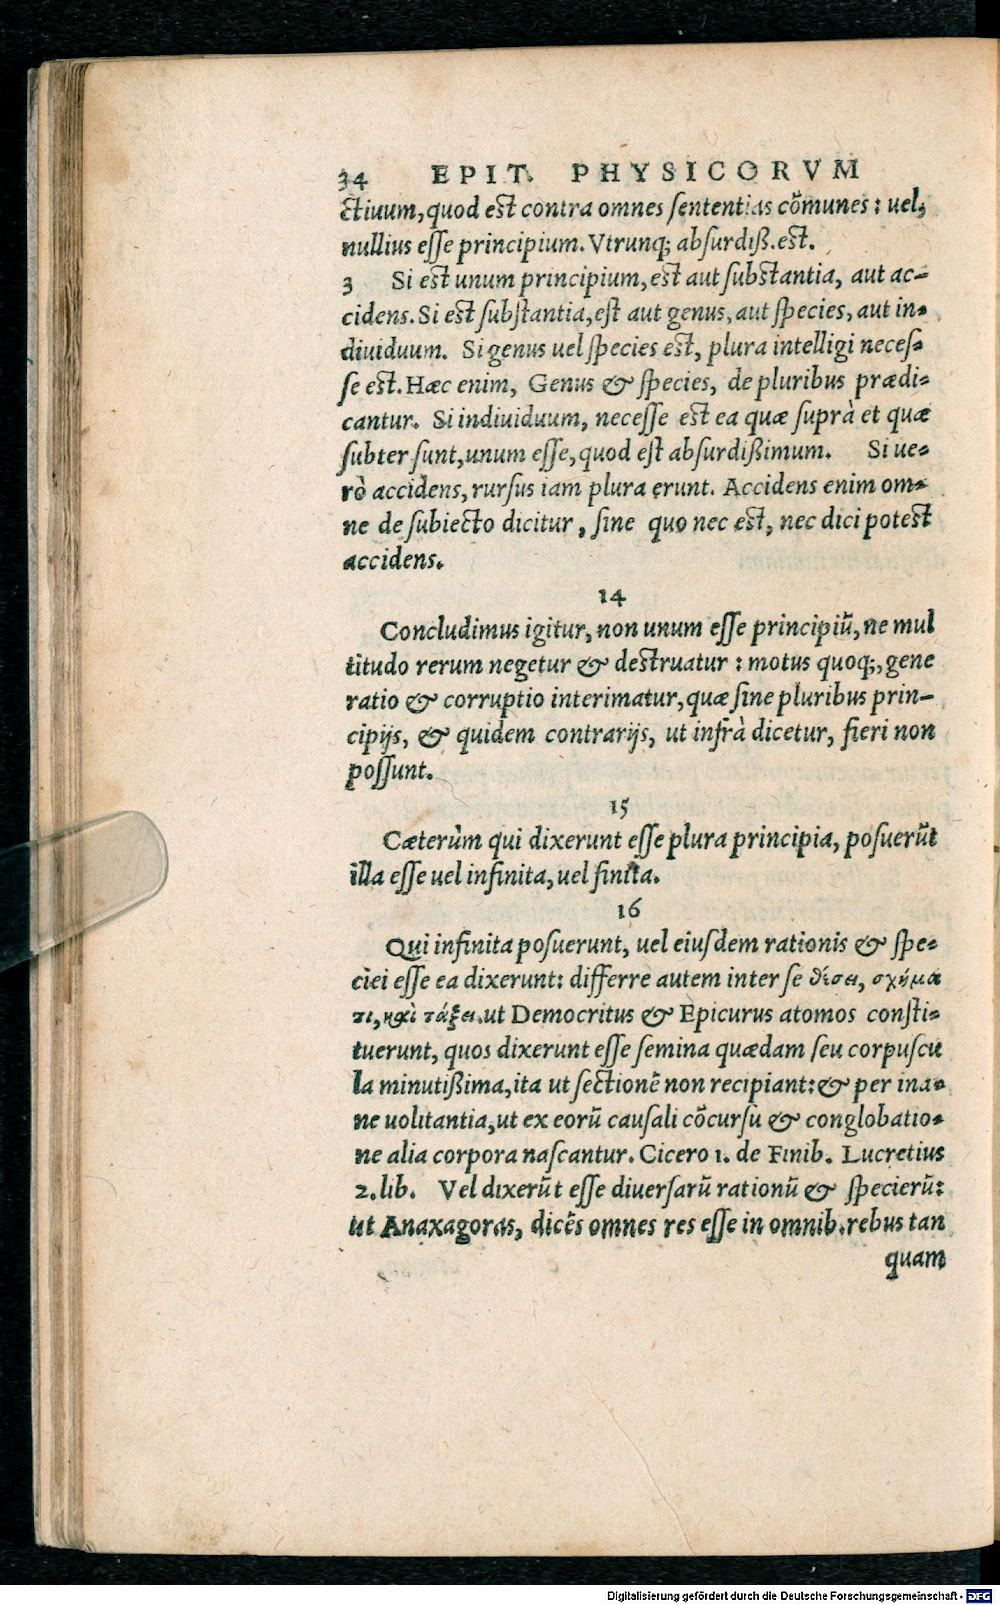 34 EPIT. PHYSICORVM
ctiuum, quod est contra omnes sententias cõmunes: uel,
nullius esse principium. Vtrunq; absurdiß. est.
3 Si est unum principium, est aut substantia, aut ac-
cidens. Si est substantia, est aut genus, aut species, aut in-
diuiduum. Si genus uel species est, plura intelligi neces-
se est. Hæc enim, Genus & species, de pluribus prædi-
cantur. Si indiuiduum, necesse est ea quæ suprà et quæ
subter sunt, unum esse, quod est absurdißimum. Si ue-
rò accidens, rursus iam plura erunt. Accidens enim om-
ne de subiecto dicitur, sine quo nec est, nec dici potest
accidens.
14
Concludimus igitur, non unum esse principiũ, ne mul
titudo rerum negetur & destruatur: motus quoq;, gene
ratio & corruptio interimatur, quæ sine pluribus prin-
cipijs, & quidem contrarijs, ut infrà dicetur, fieri non
possunt.
15
Cæterùm qui dixerunt esse plura principia, posuerũt
illa esse uel infinita, uel finita.
16
Qui infinita posuerunt, uel eiusdem rationis & spe-
ciei esse ea dixerunt: differre autem inter se θέσει, σχήμα
τι, καὶ τάξει. ut Democritus & Epicurus atomos consti-
tuerunt, quos dixerunt esse semina quædam seu corpuscu
la minutißima, ita ut sectionẽ non recipiant: & per ina-
ne uolitantia, ut ex eorũ causali cõcursu & conglobatio-
ne alia corpora nascantur. Cicero 1. de Finib. Lucretius
2. lib. Vel dixerũt esse diuersarũ rationũ & specierũ:
ut Anaxagoras, dicẽs omnes res esse in omnib. rebus tan
quam
Digitalisierung gefördert durch die Deutsche Forschungsgemeinschaft - DFG